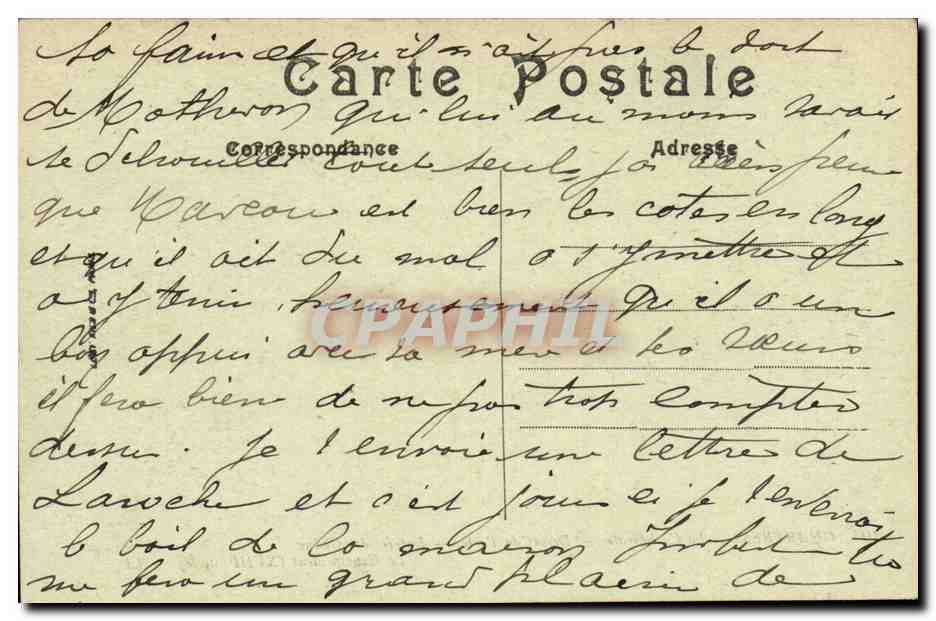 sa faim et qu'il n'ait pas le sort
Carte Postale
de Matheron qui lui au moins savait
Correspondance
Adresse
se débrouiller tout seul, j'ai bien peur
que Marcou est bien les cotes en long
et qu'il ait du mal a s'y mettre et
a y tenir, heureusement qu'il a un
CPAPHIL
bon appui avec sa mere et ses sœurs
il fera bien de ne pas trop compter
dessus. Je t'envoie une lettre de
Laroche et ces jours ci je t'enverrai
le bail de la maison Imbert tu
me fera un grand plaisir de